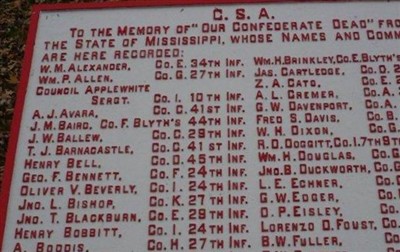 C. S. A.
To the Memory of "Our Confederate Dead" fro
the State of Mississippi, whose Names and Comm
are here recorded:
W. M. Alexander, Co. E. 34th Inf.
Wm. P. Allen, Co. G. 27th Inf.
Council Applewhite
Sergt. Co. I. 10th Inf.
A. J. Avara, Co. G. 41st Inf.
J. M. Baird, Co. F. Blyth's 44th Inf.
J. W. Ballew, Co. C. 29th Inf.
T. J. Barnacastle, Co. C. 41st Inf.
Henry Bell, Co. D. 45th Inf.
Geo. F. Bennett, Co. F. 24th Inf.
Oliver V. Beverly, Co. I. 24th Inf.
Jno. L. Bishop, Co. K. 27th Inf.
Jno. T. Blackburn, Co. E. 29th Inf.
Henry Bobbitt, Co. I. 24th Inf.
A. Boggis, Co. H. 27th Inf.
Wm. H. Brinkley, Co. E. Blyth's
Jas. Cartledge, Co. D.
Z. A. Cato, Co. E.
A. L. Cremer, Co. A.
G. W. Davenport, Co. A.
Fred S. Davis, Co. B.
W. H. Dixon, Co. B.
R. O. Doggitt, Co. I. 7th B
Wm. H. Douglas, Co. G.
Jno. B. Duckworth, Co.
L. E. Echner, Co.
G. W. Edger, Co.
O. P. Eisley, Co.
Lorenzo D. Foust, Co.
B. W. Fuller, Co.